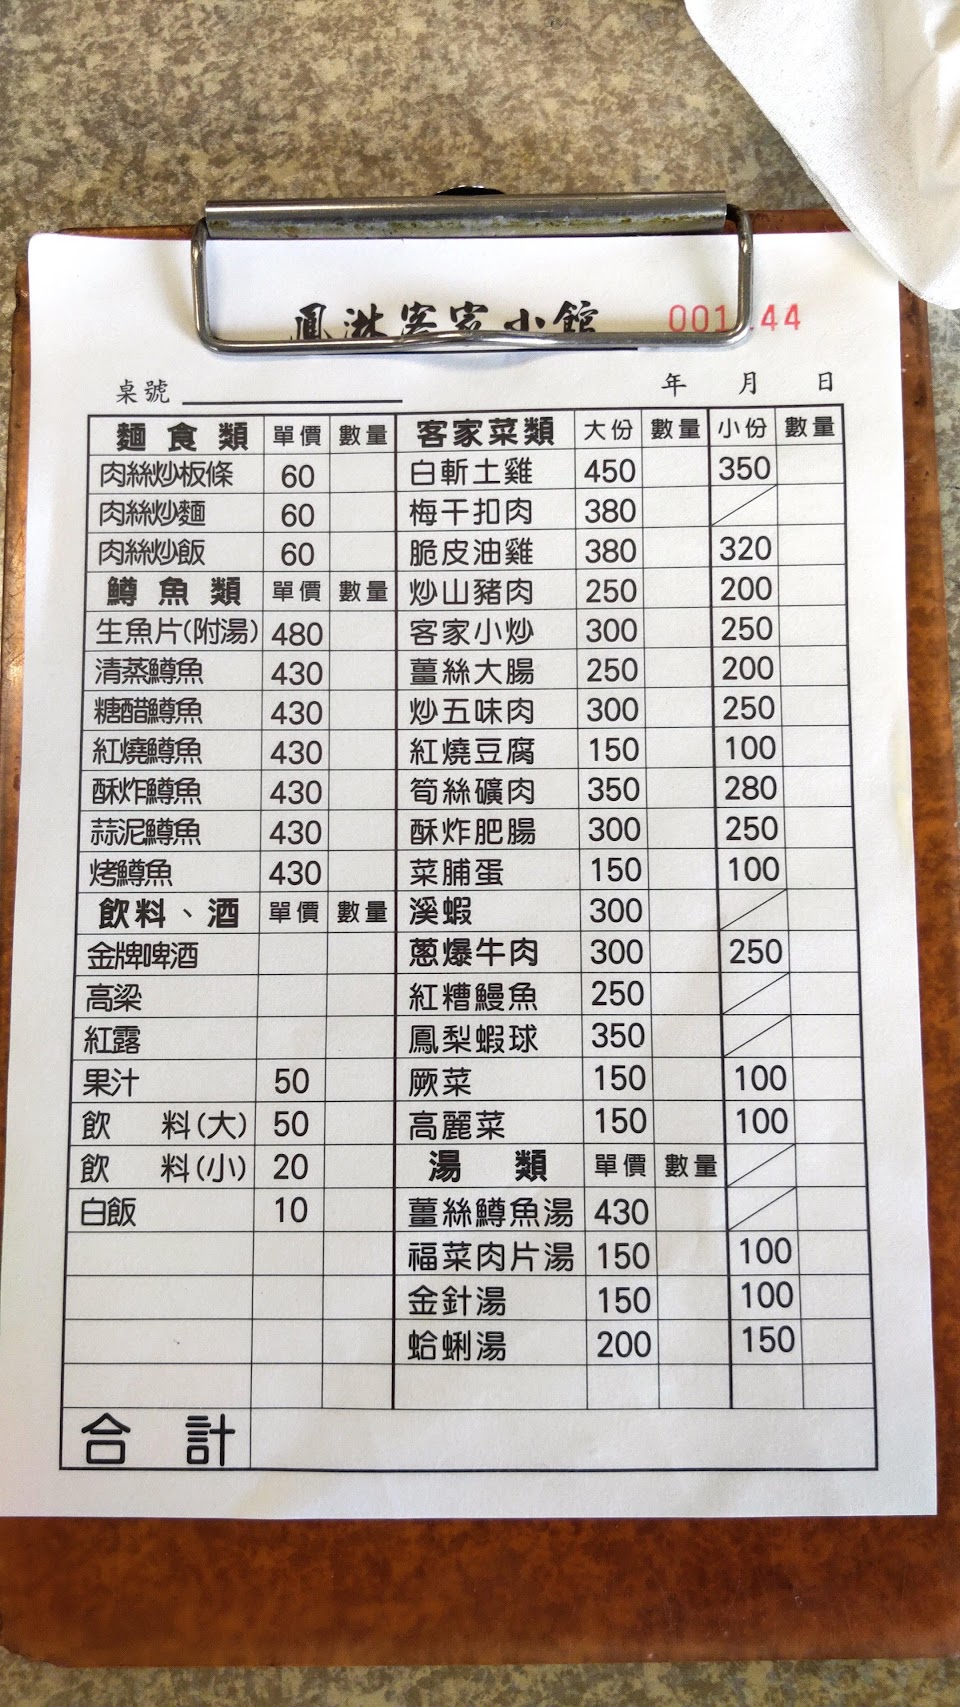 鳳淋客家小館 001 44
桌號 年 月 日
麵食類 單價 數量 客家菜類 大份 數量 小份 數量
肉絲炒板條 60 白斬土雞 450 350
肉絲炒麵 60 梅干扣肉 380
肉絲炒飯 60 脆皮油雞 380 320
鱒魚類 單價 數量 炒山豬肉 250 200
生魚片(附湯) 480 客家小炒 300 250
清蒸鱒魚 430 薑絲大腸 250 200
糖醋鱒魚 430 炒五味肉 300 250
紅燒鱒魚 430 紅燒豆腐 150 100
酥炸鱒魚 430 筍絲礦肉 350 280
蒜泥鱒魚 430 酥炸肥腸 300 250
烤鱒魚 430 菜脯蛋 150 100
飲料、酒 單價 數量 溪蝦 300
金牌啤酒 蔥爆牛肉 300 250
高梁 紅糟鰻魚 250
紅露 鳳梨蝦球 350
果汁 50 厥菜 150 100
飲料(大) 50 高麗菜 150 100
飲料(小) 20 湯類 單價 數量
白飯 10 薑絲鱒魚湯 430
福菜肉片湯 150 100
金針湯 150 100
蛤蜊湯 200 150
合計